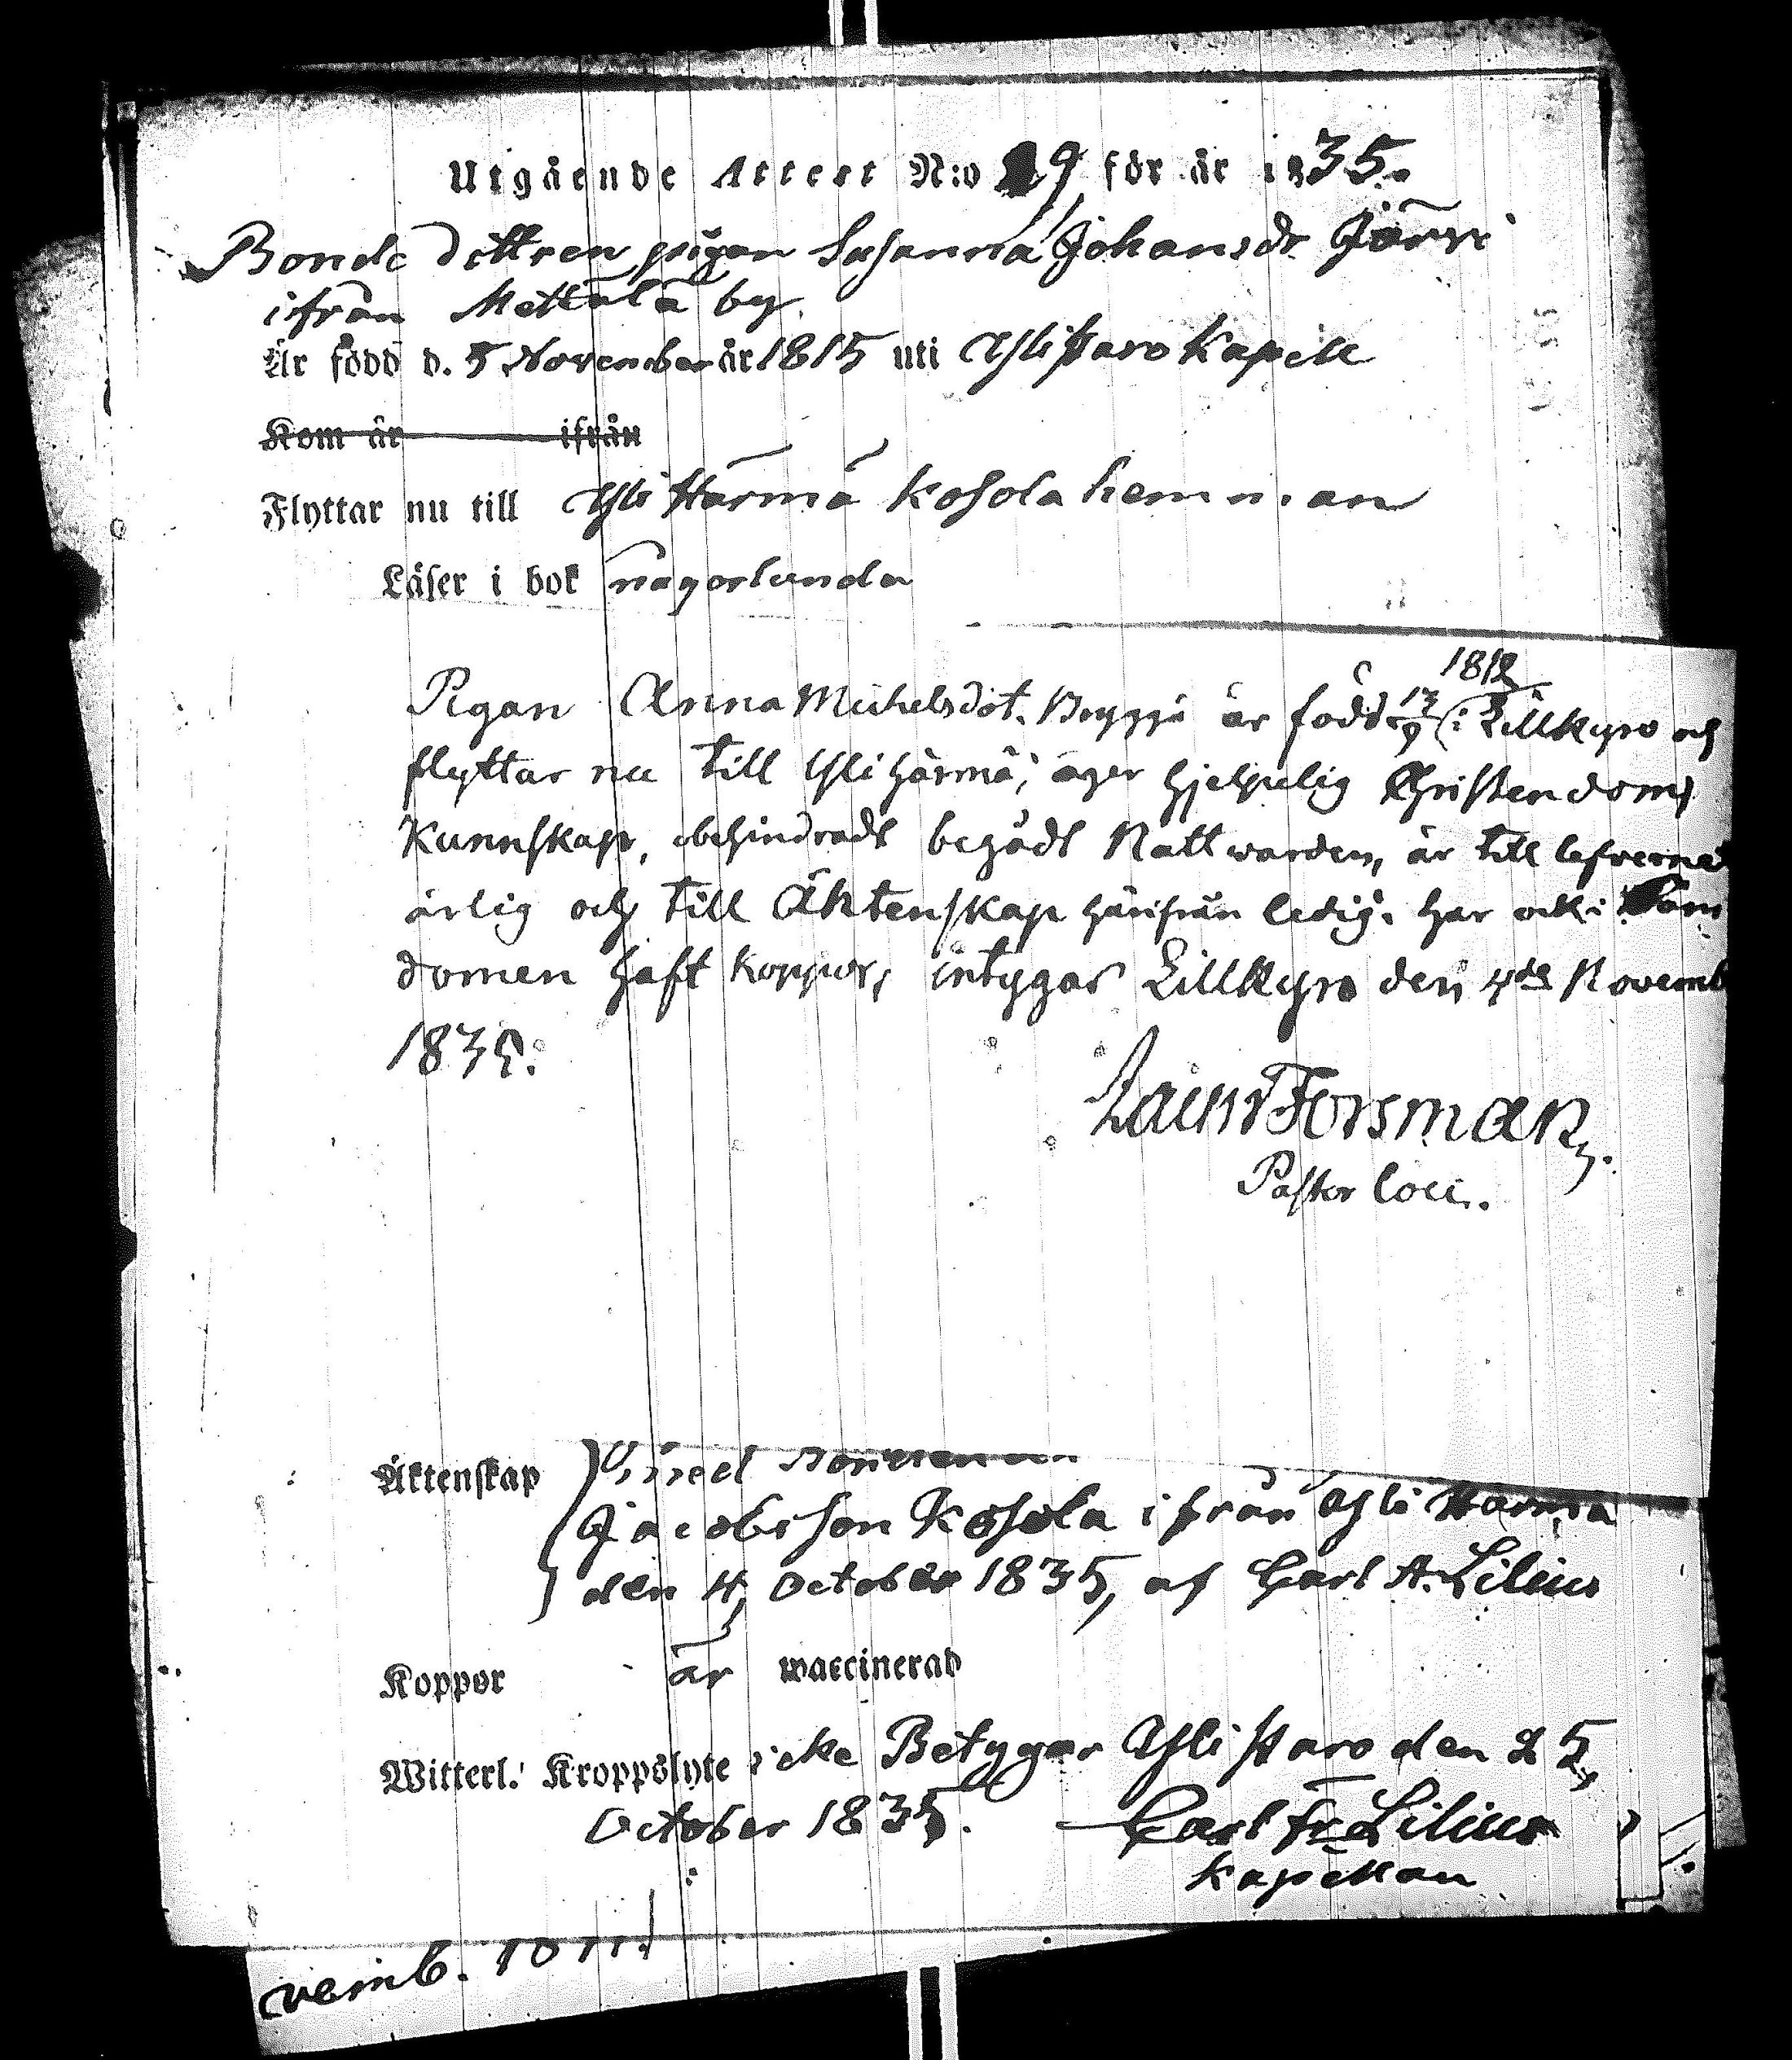 Utgående Attest N:o 29 för år 1835.
Bonde dottren pigan Susanna Johansdr Järvi
ifrån Mettälä by.
Är född d. 5 November år 1815 uti Ylistaro Kapell
Kom år ifrån
Flyttar nu till Yli Härmä Kosola hemman
Läser i bok någorlunda
1812
Pigan Anna Michelsdot. är född 13/9 i Lillkyro och
flyttar nu till Ylihärmä; äger hjelpelig Christendoms
Kunnskap, obehindradt begådt Nattwarden, är till lefverne
ärlig och till Äktenskap härifrån ledig. Har ock i Barn
domen haft koppor, intygar Lillkyro den 4de Novemb
1835.
Forsman.
Pastor Loci.
Äktenskap med Bonden
Jacobsson Kosola ifrån Yli Härmä
den 4 October 1835, af Carl A. Lilius
Koppor är vaccinerad
Witterl. Kroppslyte icke Betygar Ylistaro den 25
October 1835. Carl Fr Lilius
Kapellan
vemb.